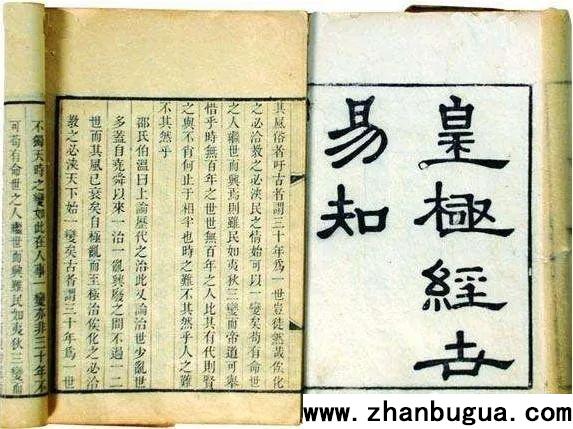 皇極經世
易知
其風俗者吁古者謂三十年爲一世豈徒然哉俟化
之必洽教之必浹民之情始可以一變矣苟有命世
之人繼世而興焉則雖民如夷狄三變而帝道可舉
惜乎時無百年之世世無百年之人比其有代則賢
之與不肖何止于相半也時之難不其然乎人之難
不其然乎
邵氏伯溫曰上論歷代之治此又論治世少亂世
多蓋自堯舜以來一治一亂興廢之間不過一二
世而其風已衰矣自極亂而至極治俟化之必洽
教之必浹天下始一變矣古者謂三十年爲一世
不獨天時之變如此在人事一變亦非三十年不
可苟有命世之人繼世而興雖民如夷狄三變而
www.zhanbugua.com